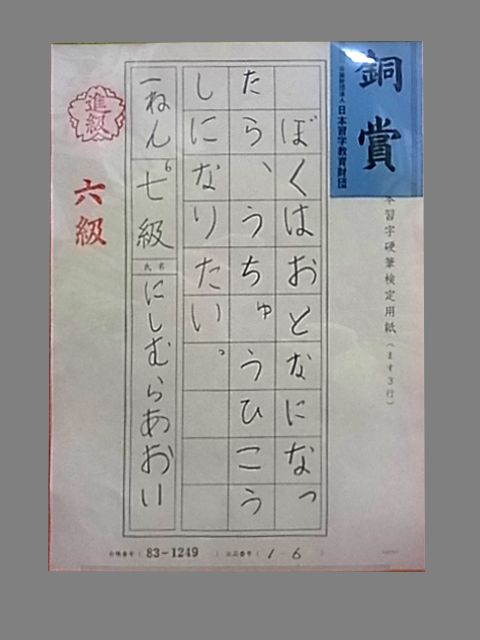 銅賞
公益財団法人 日本習字教育財団
本習字硬筆検定用紙(ます3行)
ぼくはおとなになっ
たら、うちゅうひこう
しになりたい。
一ねん 七級
6
氏名 にしむらあおい
進級
六級
会員番号( 83-1249 ) 出品番号( 1-6 )